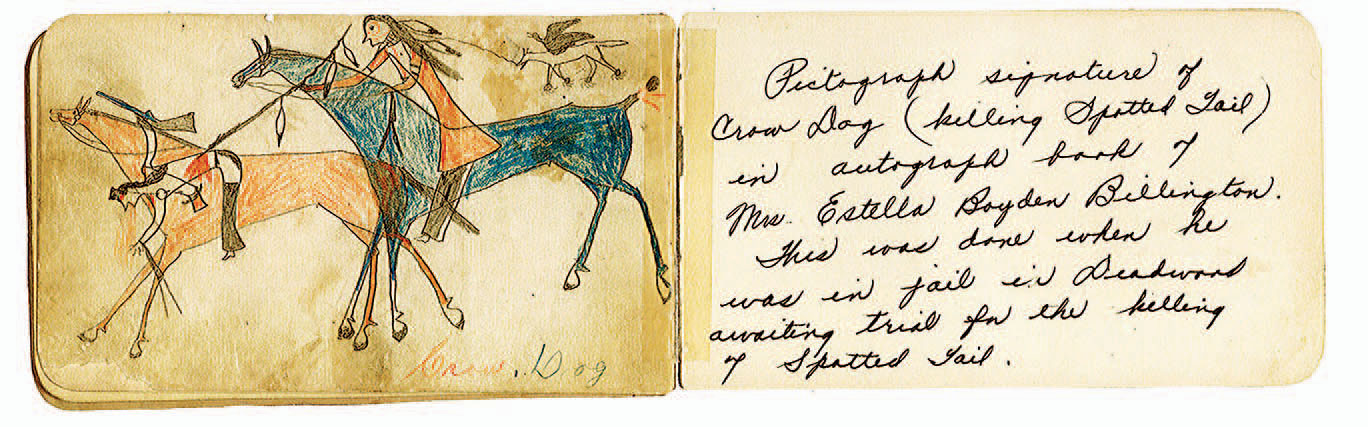 Crow.Dog
Pictograph signature of
Crow Dog (killing Spotted Tail)
in autograph book of
Mrs. Estella Boyden Billington.
This was done when he
was in jail in Deadwood
awaiting trial for the killing
of Spotted Tail.